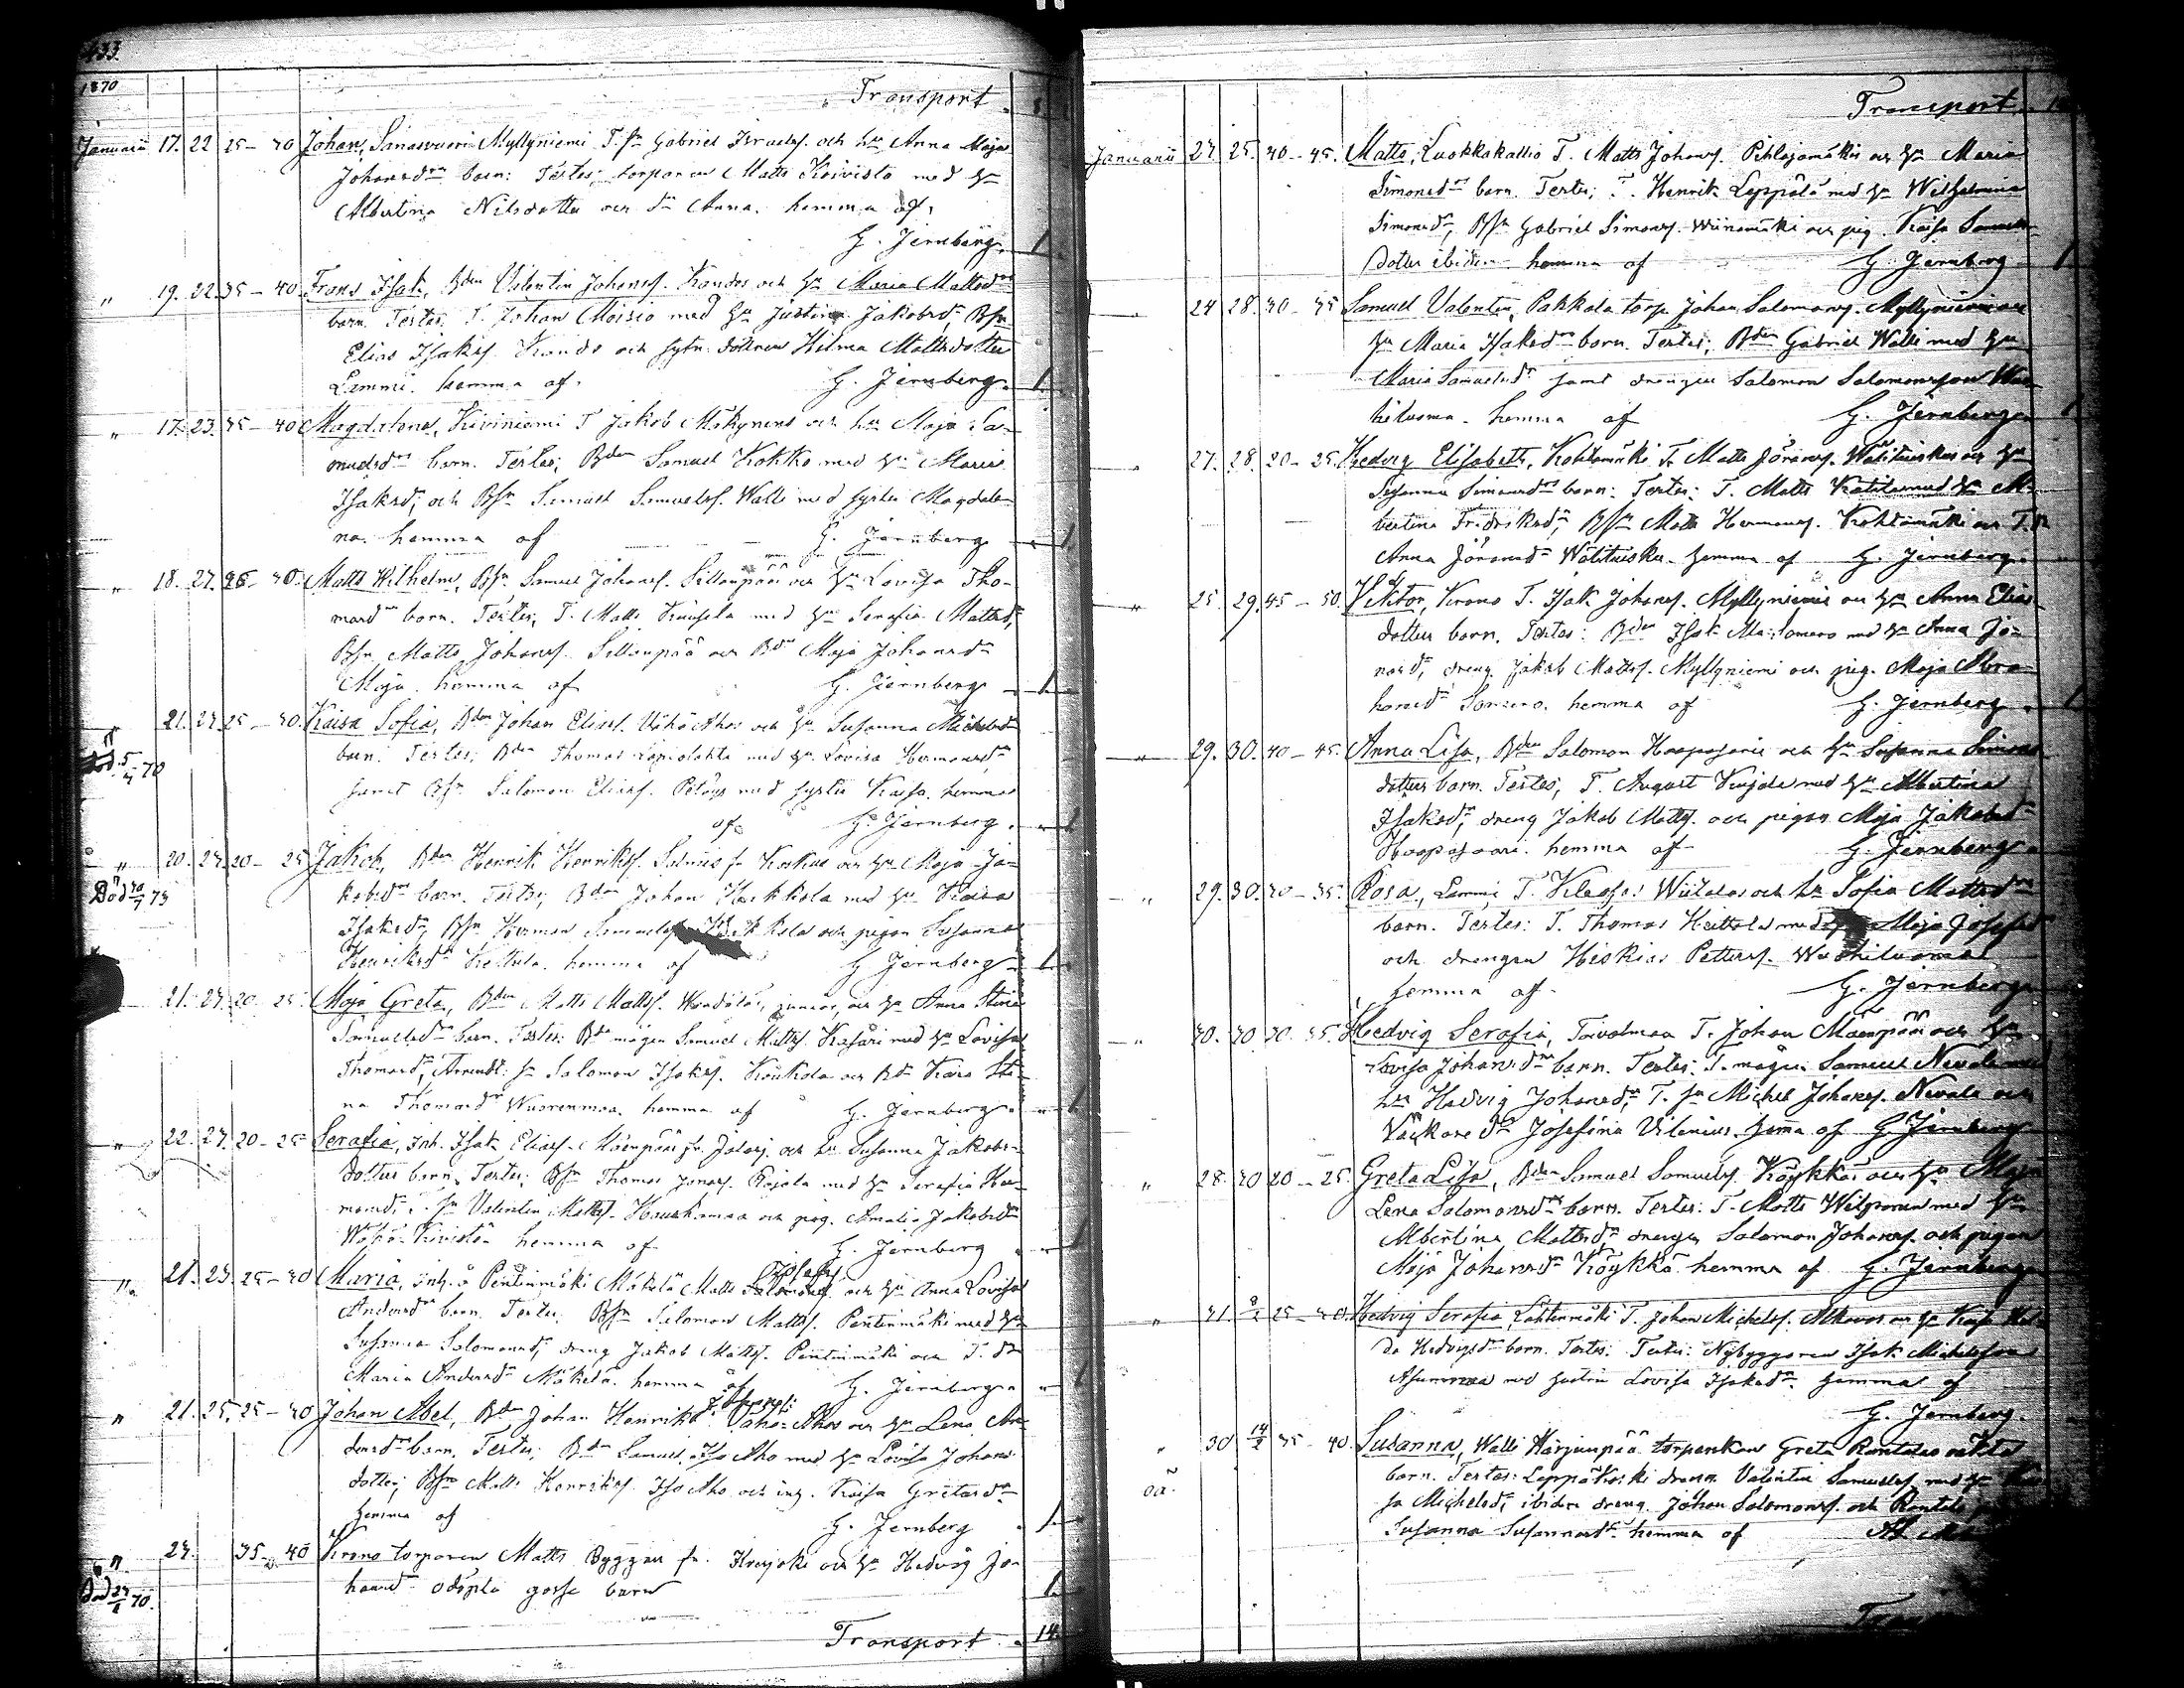 433.
1870
Transport
Januarii 17. 22 25-30 Johan, Sanasvuori Myllyniemi T. sn Gabriel Israelss. och hu Anna Maja
Johansdrs barn: Testes: torparen Matts Koivisto med hu
Albertina Nilsdotter och dr Anna. hemma af.
G. Jernberg. 1
" 19. 22. 35-40. Frans Isak, Bden Valentin Johanss. Kandos och hu Maria Mattsdrs
barn. Testes: T. Johan Moisio med hu Justina Jakobsdr, Bsn
Elias Isakss. Kando och dottren Hilma Mattsdotter
Lammi. hemma af. G. Jernberg. 1
" 17. 23. 35-40 Magdalena, Kiviniemi T Jakob Mäkynens och hu Maja Sa-
muelsdrs barn. Testes; Bden Samuel Kokko med hu Maria
Isaksdr, och Bsn Samuel Samuelss. Walli med syster Magdale-
na. hemma af G. Jernberg 1
" 18. 27. 25-30. Matts Wilhelm, Bsn Samuel Johanss. Sillanpää och hu Lovisa Tho-
masdrs barn. Testes; T. Matts med hu Serafia Mattsdr,
Bsn Matts Johanss. Sillanpää och Bdr Maja Johansdr
Maja. hemma af G. Jernberg 1
" 21. 24. 25-30. Kaisa Sofia, Bden Johan Eliass. Vähä Ahos och hu Susanna Michelsdrs
Död 5/4 70
barn. Testes; Bden Thomas med hu Lovisa Hermansdr
samt Bsn Salomon Eliass. med syster Kaisa. hemma
af G. Jernberg. 1
" 20. 24. 20-25 Jakob, Bden Henrik Henrikss. och hu Maja Ja-
Död 73
kobsdrs barn. Testes; Bden Johan Heikkola med hu Kaisa
Isaksdr, Bsn Herman Samuelss. och pigan Susanna
Henriksdr hemma af G. Jernberg 1
21. 24. 20 25. Maja Greta, Bden Matts Mattss. junior, och hu Anna Stina
Samuelsdrs barn. Testes: Bde mågen Samuel Mattss. Kasari med hu Lovisa
Thomasdr, Arrendt: sn Salomon Isakss. Koukola och Bdr Kaisa Sti-
na Thomasdr Wuorenmaa. hemma af G. Jernberg. 1
" 22. 24. 20-25 Serafia, Inh. Isak Eliass. Mäenpää fr. Jalasj. och hu Susanna Jakobs-
dotters barn. Testes; Bsn Thomas Rajala med hu Serafia Her-
mansdr, T. sn Valentin Mattss. Haukamaa och pig. Amalia Jakobsdr
Wähä-Kivistö hemma af G. Jernberg 1
" 21. 23. 25-30 Maria, inh. å Pentinmäki Mäkelä Matts och hu Anna Lovisa
Andersdrs barn. Testes: Bsn Salomon Mattss. Pentinmäki med hu
Susanna Salomonsdr, dreng Jakob Mattss. Pentinmäki och T. dr
Maria Andersdr Mäkelä. hemma af G. Jernberg. 1
" 21. 25. 25-30 Johan Abel, Bden Johan Henrikss. Vähä-Ahos och hu Lena An-
dersdrs barn. Testes; Bden Samuel Iso Aho med hu Lovisa Johans-
dotter; Bsn Matts Henrikss. Iso Aho och inh. Kaisa Gretasdr
hemma af G. Jernberg 1
24. 35-40 Krono torparen Matts Byggare fr. och hu Hedvig Jo-
Död 24/1 70.
hansdr odöpta gosse barn 1
Transport 14

Transport
Januarii 23. 25. 40-45. Matts, Luokkakallio T. Matts Johanss. Pihlajamäkis och hu Maria
Simonsdrs barn. Testes; T. Henrik Leppälä med hu Wilhelmina
Simonsdr, Bsn Gabriel Simonss. Wiinamäki och pig. Kaisa Samuels-
dotter ibidem. hemma af G. Jernberg 1
" 24 28. 30-35 Samuel Valentin, Pakkala torp. Johan Salomonss. Myllyniemis och
hu Maria Isaksdrs barn. Testes; Bden Gabriel Walli med hu
Maria Samuelsdr samt drengen Salomon Salomonsson
hiluoma. hemma af G. Jernberg 1
" 27. 28. 20-25. Hedvig Elisabeth, Kohtamäki T. Matts Göranss. Wälituiskus och hu
Susanna Simonsdrs barn: Testes: T. Matts Katila med hu Al-
bertina Fredriksdr, Bsn Matts Hermanss. Kohtamäki och T. dr
Anna Göransdr Wälituisku. hemma af G. Jernberg.
" 25. 29. 45-50. Viktor, Krono T. Isak Johanss. Myllyniemis och hu Anna Elias-
dotters barn. Testes: Bden Isak med hu Anna Jo-
nasdr, dreng. Jakob Mattss. Myllyniemi och pig. Maja Abra-
hamsdr Somero. hemma af G. Jernberg. 1
" 29. 30. 40-45. Anna Lisa, Bden Salomon Haapasaaris och hu Susanna Simons-
dotters barn. Testes; T. August med hu Albertina
Isaksdr, dreng Jakob Mattss. och pigan Maja Jakobsdr
Haapasaari. hemma af G. Jernberg
" 29. 30. 30-35. Rosa, Lammi T. Kleofas Wiitalas och hu Sofia Mattsdrs
barn. Testes: T. Thomas Heittola med Maja Josefsdr
och drengen Hiskias Petterss.
hemma af G. Jernberg
" 30. 30. 30. 35. Hedvig Serafia, Toivolmaa T. Johan Mäenpää och hu
Lovisa Johansdrs barn. Testes: T. mågen Samuel Nevala med
hu Hedvig Johansdr, T. sn Michel Johanss. Nevala och
Väckare dr Josefina Vilenius. hemma af G. Jernberg
" 28. 30 20-25. Greta Lisa, Bden Samuel Samuelss. Köykkäs och hu Maja
Lena Salomonsdrs barn. Testes: T. Matts med hu
Albertina Mattsdr, drengen Salomon Johanss. och pigan
Maja Johansdr Köykkä hemma af G. Jernberg
" 31. 2 25-30. Hedvig Serafia, Lahtinmäki T. Johan Michelss. och hu Kaisa
da Hedvigsdrs barn. Testes: Testes: Nybyggaren Isak Michelsson
Asunmaa med hustrun Lovisa Isaksdr. hemma af
G. Jernberg.
" 30 14/2 35-40. Susanna, Walli Harjunpää torpenkan Greta Rantalas oäkta
oä.
barn. Testes: Leppäkoski drengen Valentin Samuelss. med hu
sa Michelsdr, ibidem dreng. Johan Salomonss. och Rantala
Susanna Susannasdr. hemma af